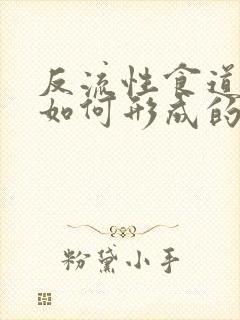 反流性食道
如何形成的
粉黛小手